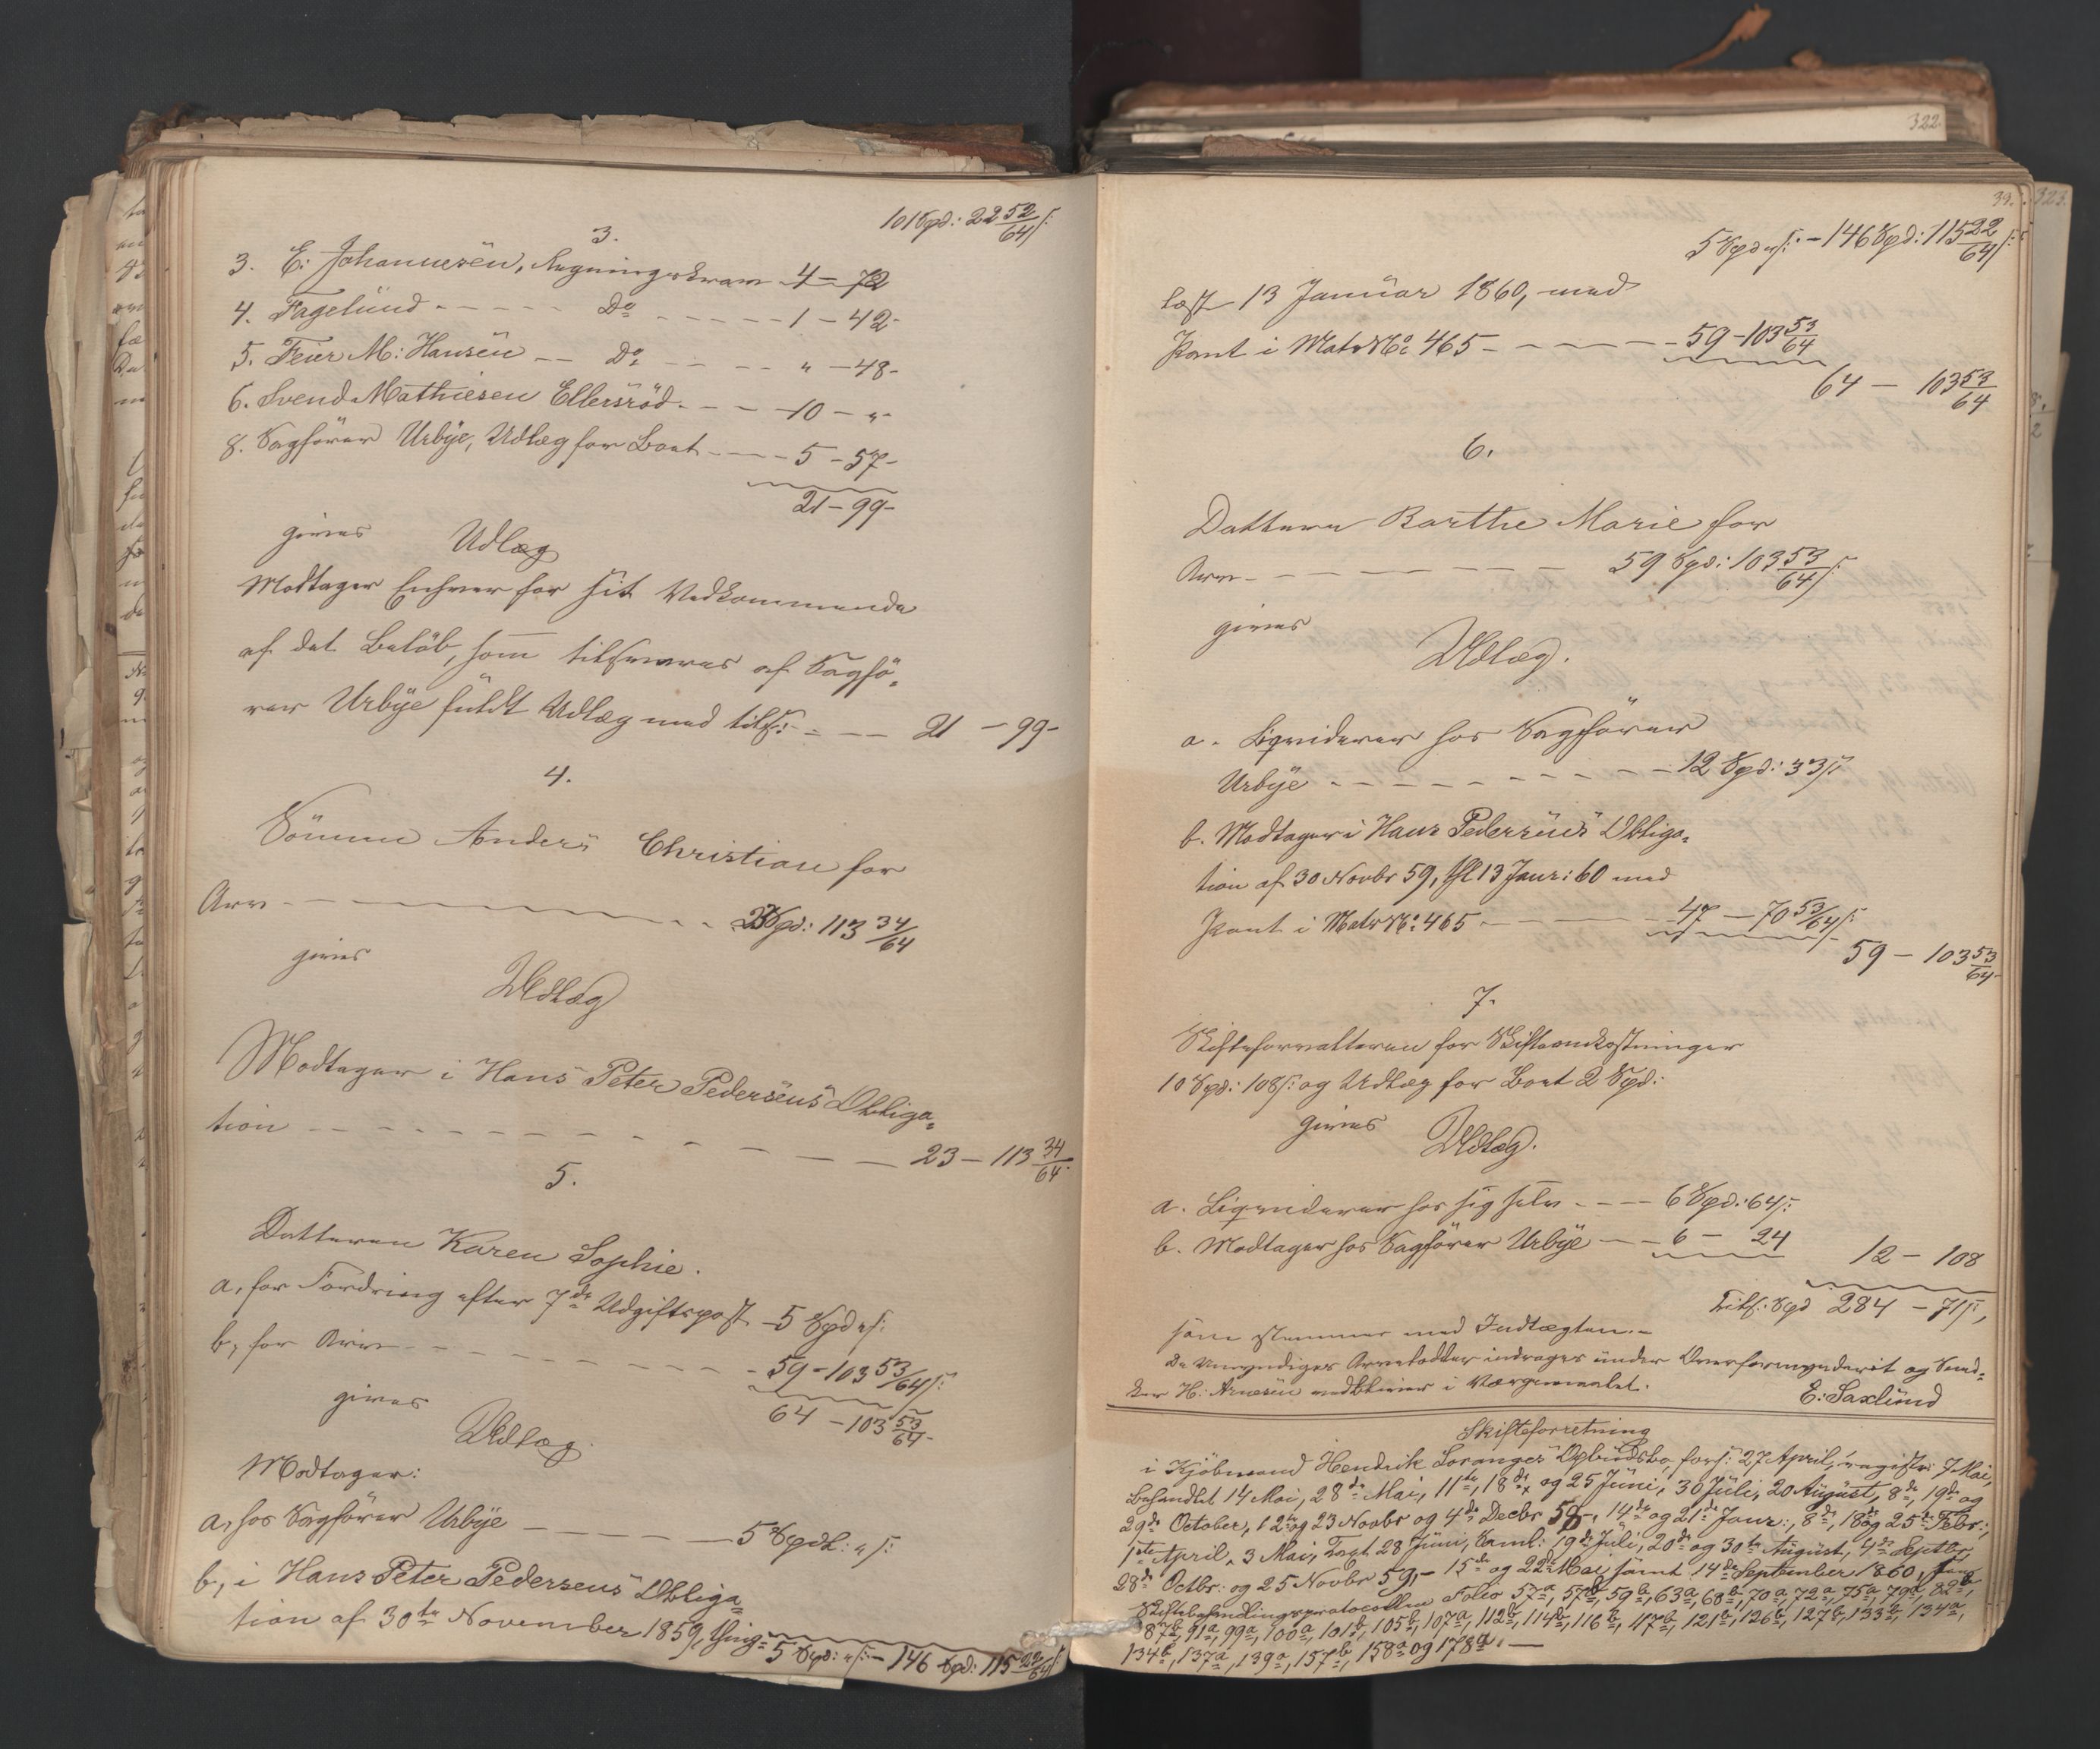 101 Spd: 22 52/64 ß:
3.
3. E: Johannesen, Regningskrav 4 – 72
4. Fagelund - - - - - Do - - - - - 1 – 42 -
5. Feier M: Hansen - - Do - - - - " – 48 -
6. Svend Mathiesen Ellersröd - - - 10 – "
8. Sagförer Urbye, Udlæg for Boet - - - - 5 – 57 -
21 – 99 -
gives Udlæg
Modtager Enhver for sit Vedkommende
af det Beløb, som tilsvares af Sagfö=
rer Urbye fuldt Udlæg med tils: - - - 21 – 99 -
4.
Sönnen Anders Christian for
Arv - - - - - - - 23 Spd: 113 34/64
gives
Udlæg
Modtager i Hans Peter Pedersens Obliga=
tion - - - - - - - - - - - 23 – 113 34/64
5.
Datteren Karen Sophie.
a, for Fordring efter 7de Udgiftspost – 5 Spd " ß:
b, for Arv - - - - - - - - - 59 – 103 53/64 ß:
64 – 103 53/64 -
gives
Udlæg
Modtager:
a, hos Sagförer Urbye - - - - - 5 Spdl: " ß:
b, i Hans Peter Pedersens Obliga=
tion af 30te November 1859, thing=
5 Spd: " ß: – 146 Spd: 115 22/64 ß:
322
323.
5 Spd " ß: – 146 Spd: 115 22/64 ß:
læst 13 Januar 1860, med
Pant i Matr No 465 - - - - - 59 – 103 53/64
64 – 103 53/64
6.
Datteren Barthe Marie for
Arv - - - - - - - - - 59 Spd: 103 53/64 ß:
gives
Udlæg.
a. Liqviderer hos Sagförer
Urbye - - - - - - - - - 12 Spd: 33 ß:
b. Modtager i Hans Pedersens Obliga=
tion af 30 Novbr 59, thl 13 Janr: 60 med
Pant i Matr No: 465 - - - - - 47 – 70 53/64 ß:
59 – 103 53/64 -
7.
Skifteforvalteren for Skifteomkostninger
10 Spd: 108 ß: og Udlæg for Boet 2 Spd:
gives
Udlæg.
a. Liqviderer hos sig selv - - - 6 Spd: 64 ß:
b. Modtager hos Sagförer Urbye - - 6 – 24
12 – 108
Tils: Spd 284 – 71 ß,
som stemmer med Indtægten. -
De Umyndiges Arvelodder inddrages under Overformynderiet og Sned=
ker H: Arnesen vedbliver i Værgemaalet.
E: Saxlund
Skifteforretning
i Kjöbmand Hendrik Soranges Opbudsbo, fors: 27 April, registr: 7 Mai,
behandlet 14 Mai, 28de Mai, 11te, 18de, og 25 Juni, 30 Juli, 20 August, 8de, 19de og
29de October, 12te og 23 Novbr og 4de Decbr 58, 14de og 21de Janr:, 8de, 18de og 25de Febr:,
1ste April, 3 Mai, 28 Juni, Saml: 19de Juli, 20de og 30te August, 4de Septbr,
28de Octbr: og 25 Novbr 59, – 15de og 22de Mai samt 14de September 1860,
Skiftebehandlingsprotocollen Folio 57a, 57b, 59b, 63a, 68b, 70a, 72a, 75a, 79a, 82b,
87b, 91a, 99a, 100a, 101b, 105b, 107a, 112b, 114b, 116b, 117b, 121b, 126b, 127b, 133b, 134a,
134b, 137a, 139a, 157b, 158a og 178a. —